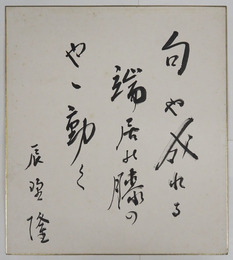 句や成れる
端居の膝の
やゝ動く
辰野隆